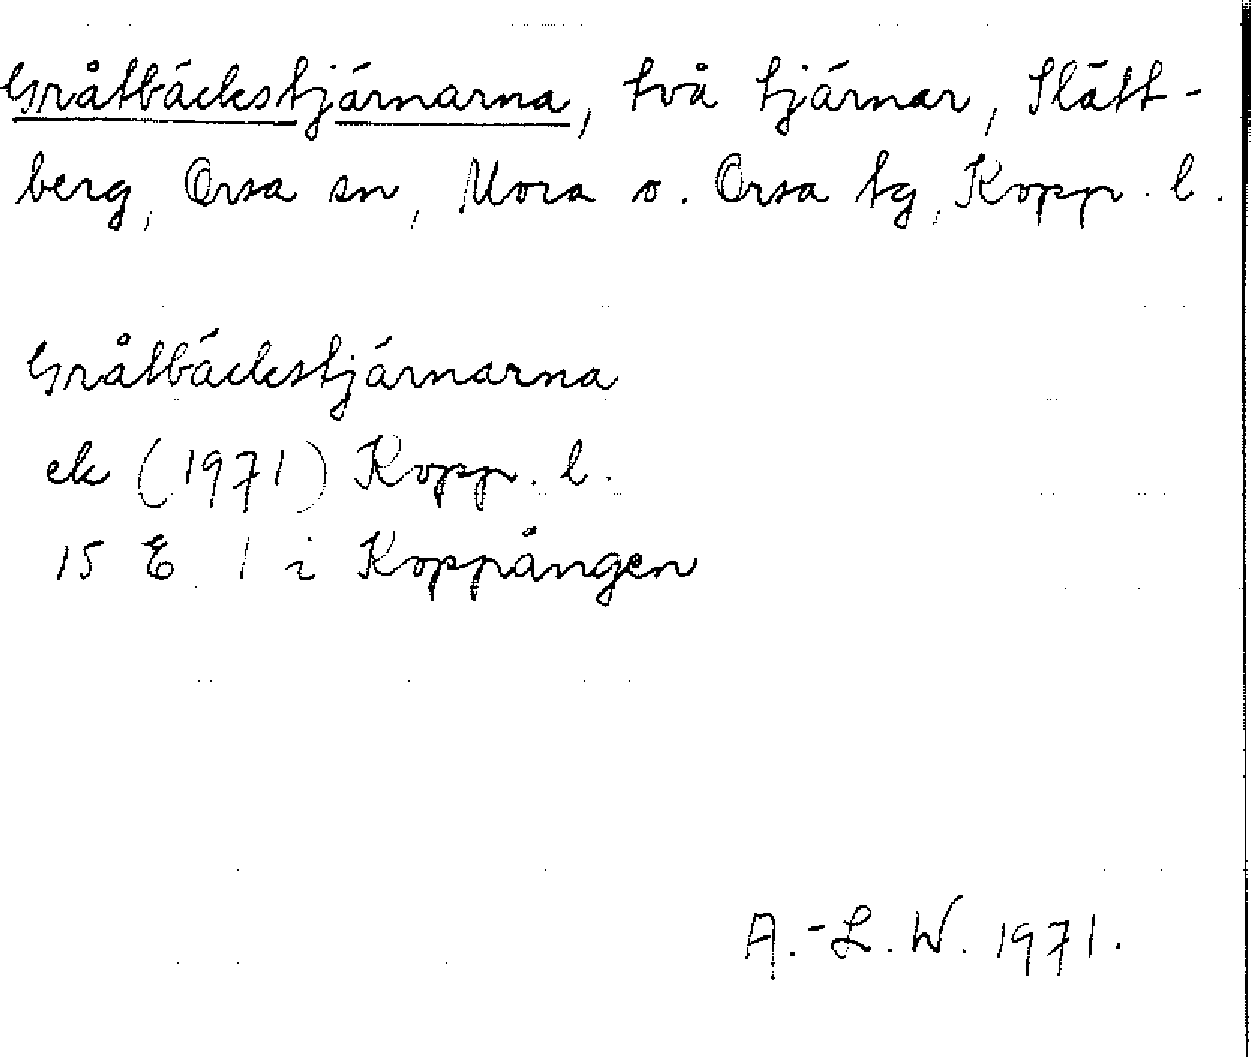 Gråtbäckstjärnarna, två tjärnar, Slätt-
berg, Orsa sn, Mora o. Orsa tg, Kopp. l.
Gråtbäckstjärnarna
ek (1971) Kopp. l.
15 E 1 i Koppången
A.-L. W. 1971.